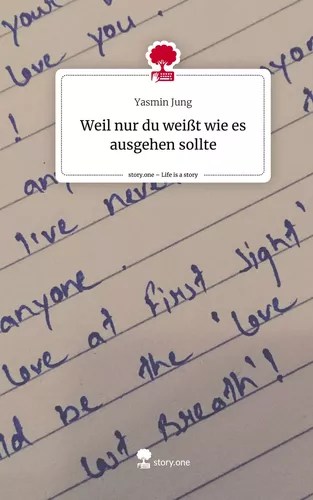 your
love you.
!
Yasmin Jung
Weil nur du weißt wie es
ausgehen sollte
story.one – Life is a story
live never
anyone.
love at first sight'
be the 'love
last Breath'!
story.one